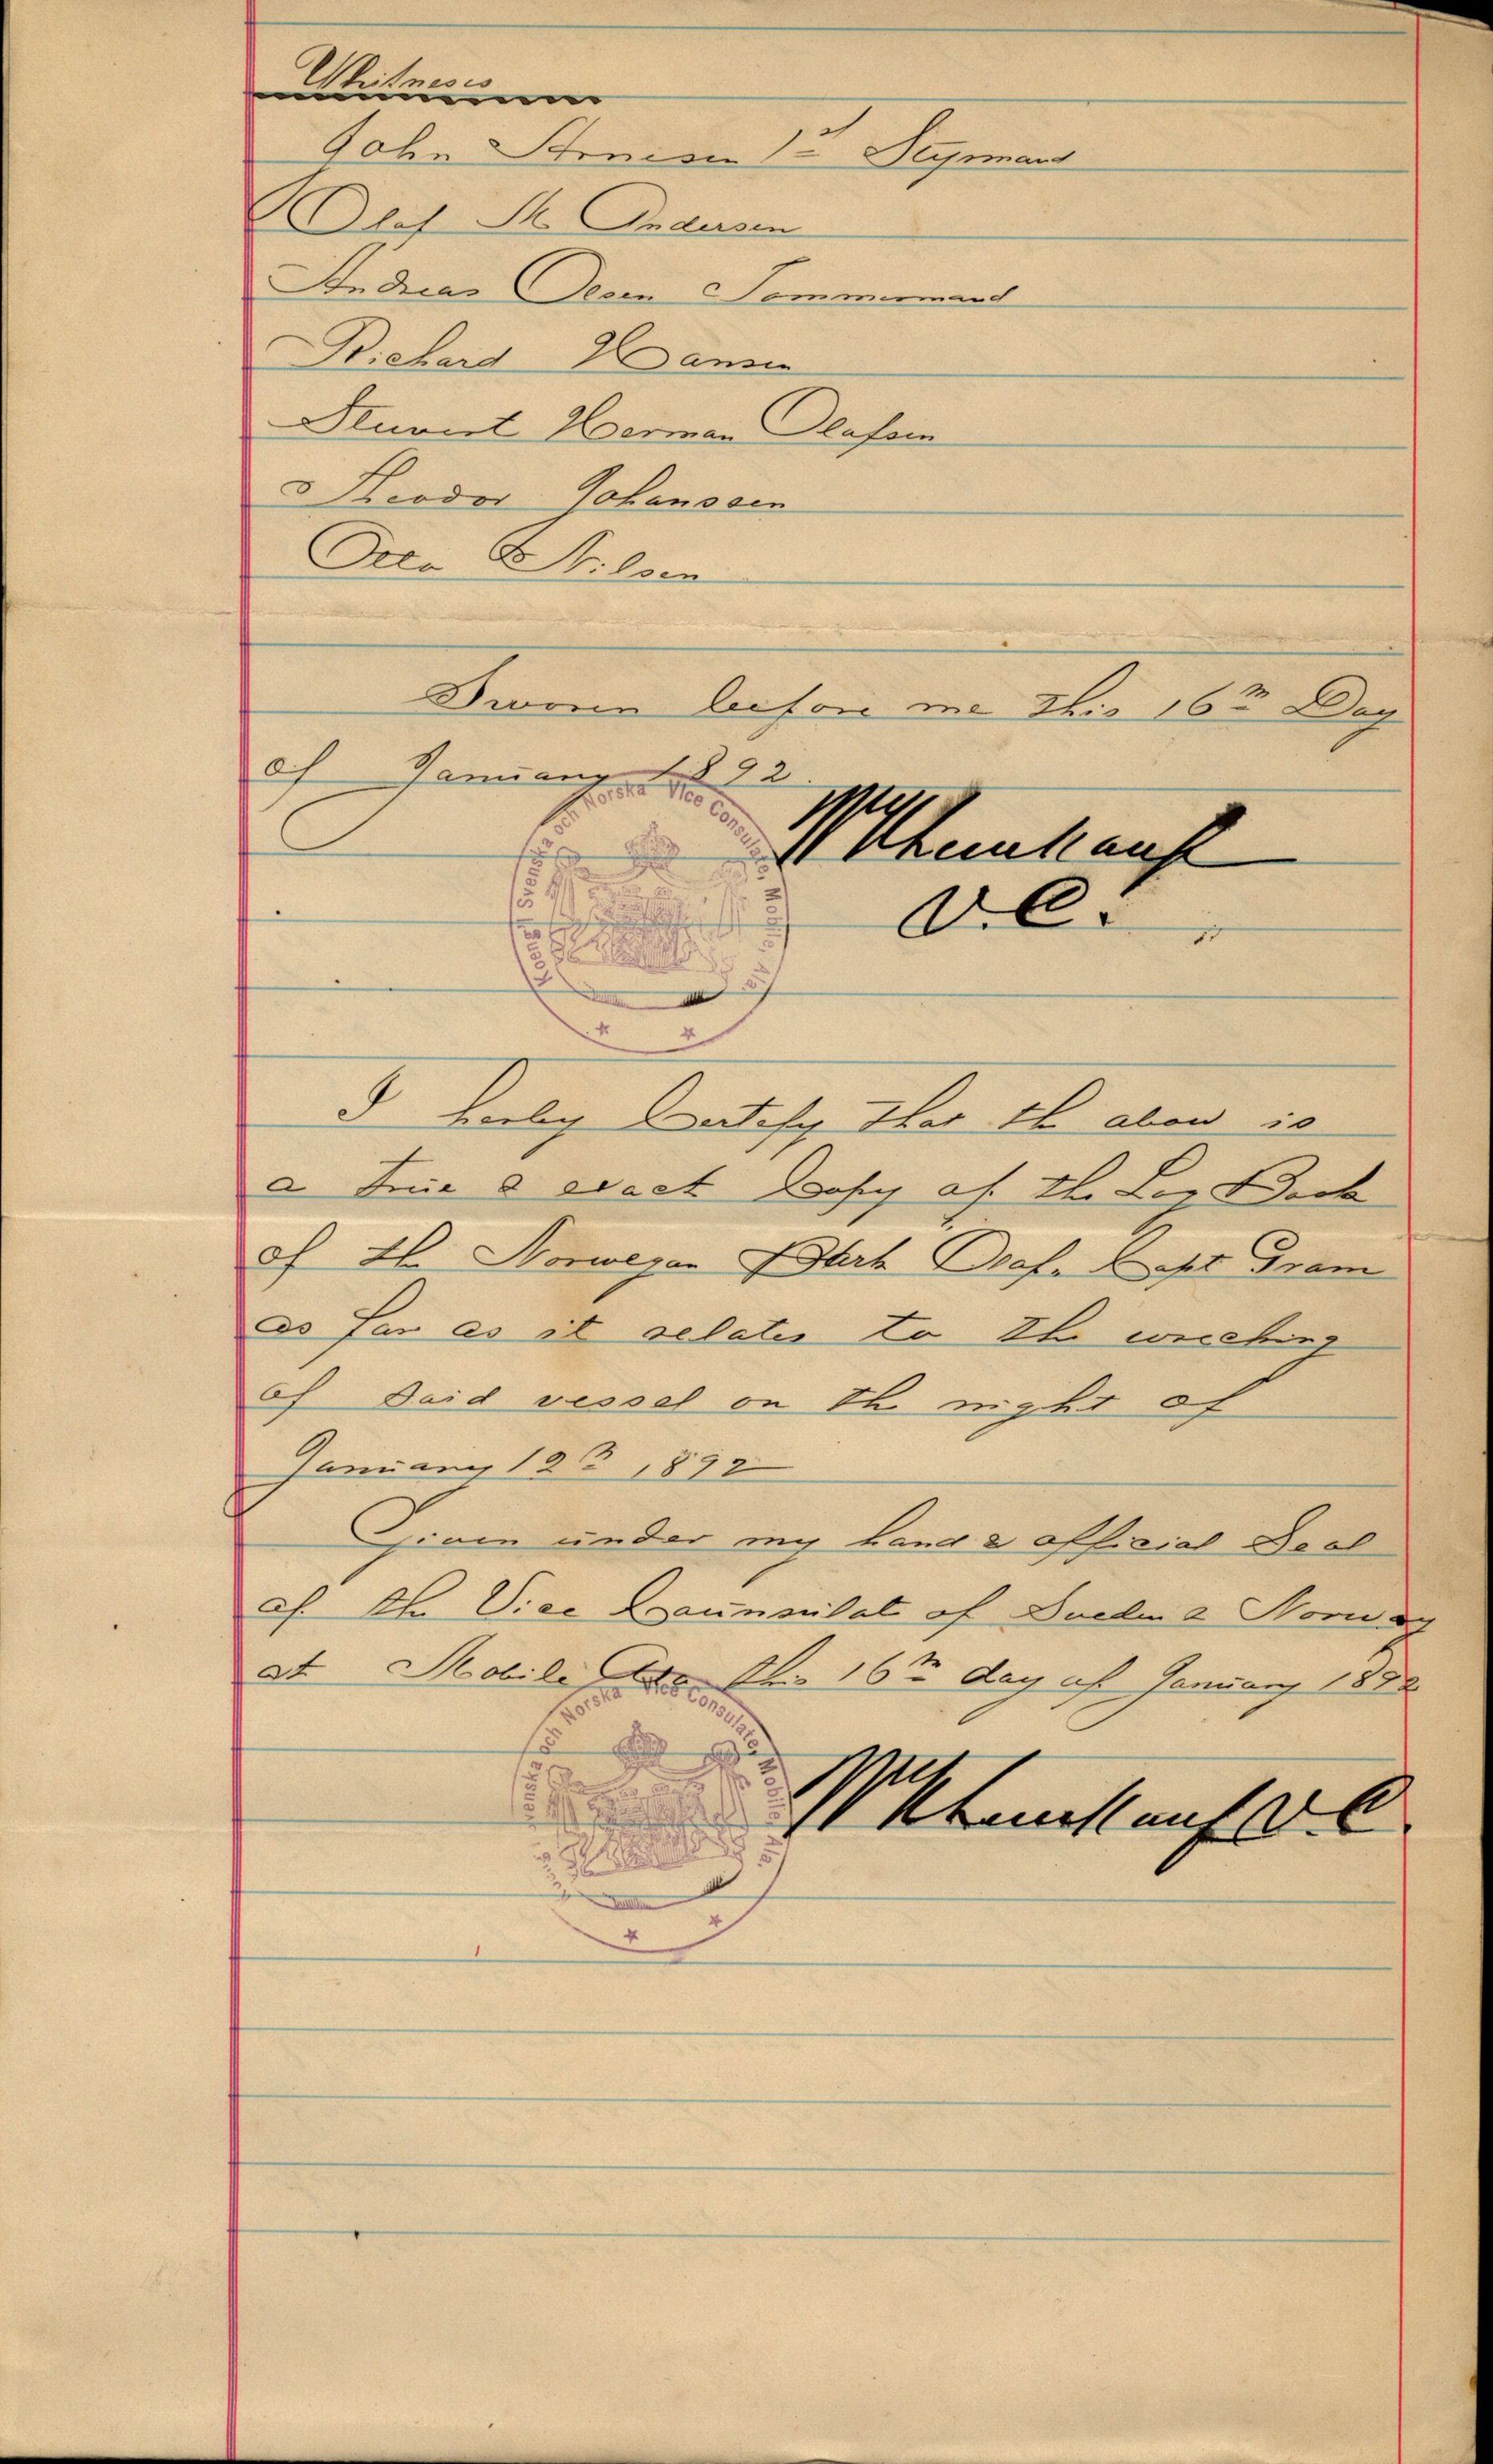 Whitneses
John Arnesen 1st Styrmand
Olaf M. Andersen
Andreas Oesen Tommermand
Richard Hansen
Stuvert Herman Olafsen
Theodor Johanssen
Otto Nilsen
Sworn before me this 16th Day
of January 1892.
Kongl. Svenska och Norska Vice Consulate, Mobile, Ala.
V.C.
I herby Certefy that the abow is
a true & exact Copy of the Log Book
of the Norwegan Bark Capt Gram
as far as it relates to the wrecking
of Said vessel on the night of
January 12th 1892
Given under my hand & official Seal
of the Vice Counsulat of Sueden & Norway
at Mobile Ala this 16th day of January 1892
Svenska och Norska Vice Consulate, Mobile, Ala.
V.C.